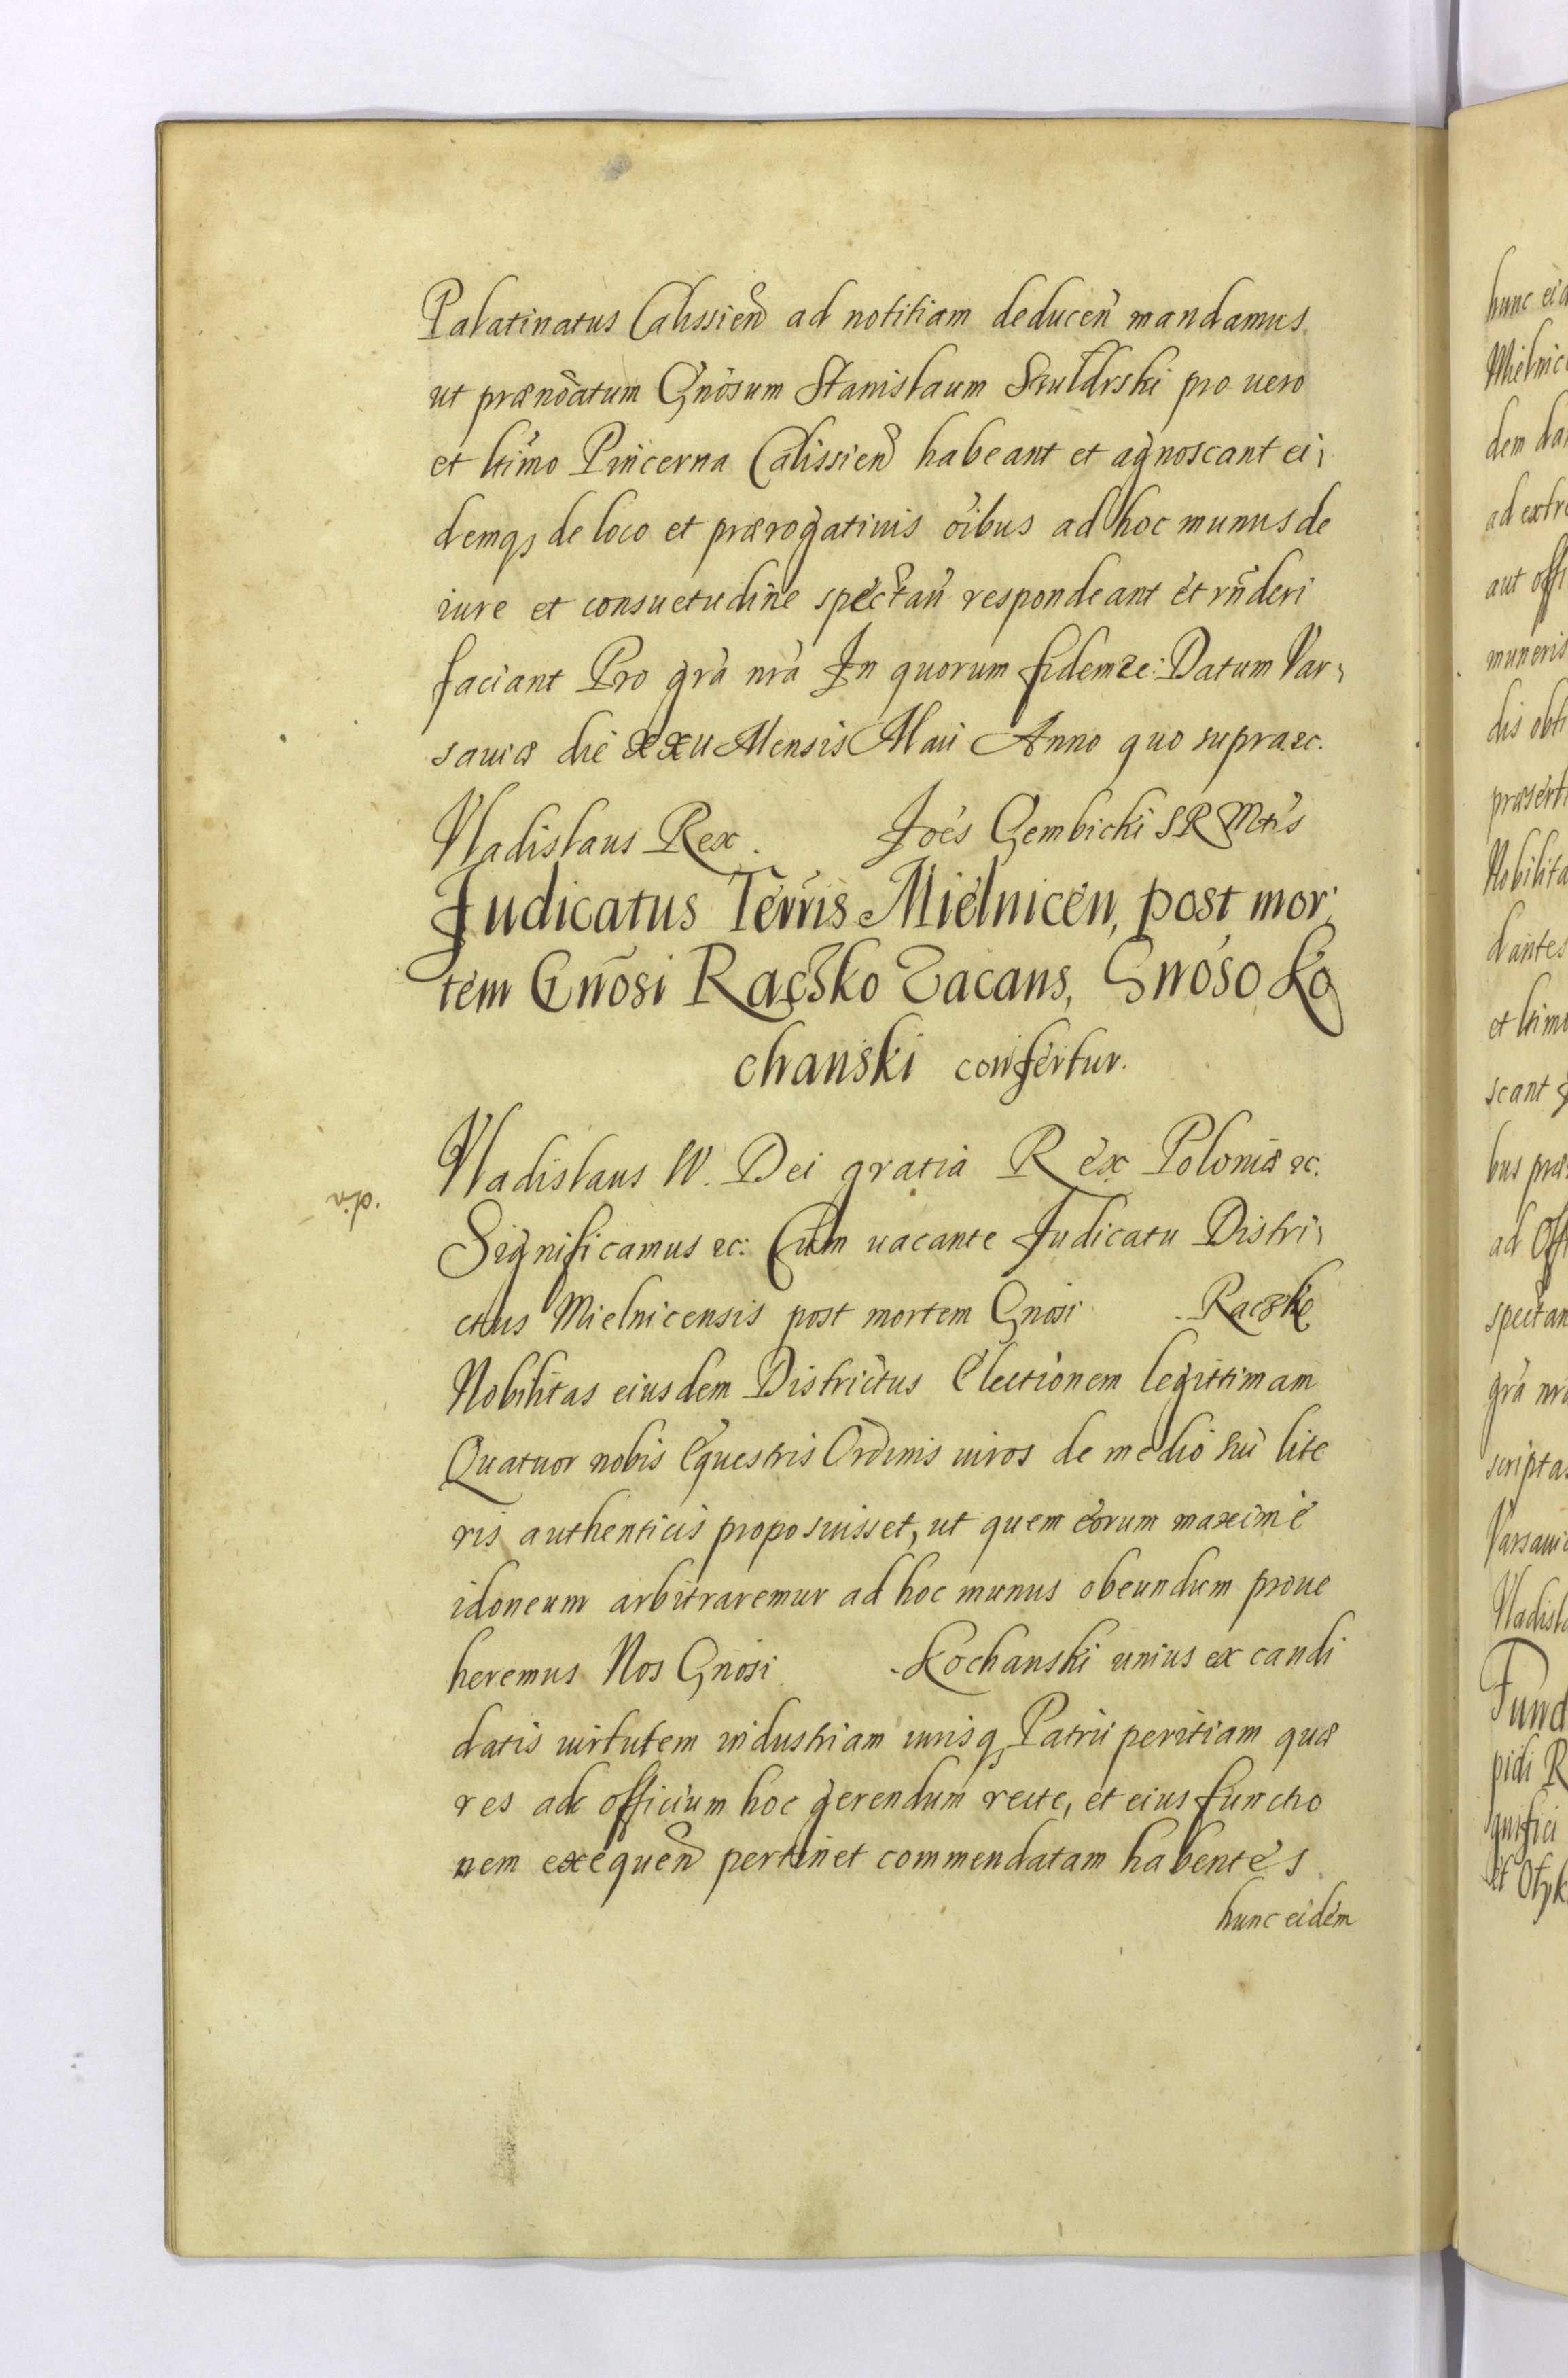 Palatinatus Calissieñ ad notitiam deduceñ mandamus
ut prænõatum Gnõsum Stanislaum Skuldrski pro uero
et ltimo Pincerna Calissieñ habeant et agnoscant ei,
demq, de loco et prærogatiuis oibus ad hoc munus de
iure et consuetudine spectañ respondeant et rñderi
faciant Pro grã nrã In quorum fidem &c: Datum Var,
sauiæ die xxu Mensis Maii Anno quo supra &c.
Vladislaus Rex. Joes Gembicki SRMtis
Judicatus Terris Mielnicen, post mor,
tem Gnõsi Raczko Vacans, Gnoso Ko
chanski confertur.
Vladislaus IV. Dei gratia Rex Poloniæ &c.
Significamus &c: Cum uacante Judicatu Distri,
ctus Mielnicensis post mortem Gnosi Raczko
Nobilitas eiusdem Districtus Electionem legittimam
Quatuor nobis Equestris Ordinis uiros de medio sui lite
ris authenticis proposuisset, ut quem eorum maxime
idoneum arbitraremur ad hoc munus obeundum proue
heremus Nos Gnosi Kochanski unius ex candi
datis uirtutem industriam iurisq, Patrii peritiam quæ
res ad officium hoc gerendum recte, et eius functio
nem exequeñ pertinet commendatam habentes
hunc eidem
hunc eid
Mielnic
dem
ad extr
aut offi
muneris
dis obt
præserti
Nobilita
dantes
et ltimo
scant
bus præ
ad Offi
spectan
grã nrã
scriptas
Varsaui
Vladisla
Fund
pidi R
gnifici
et